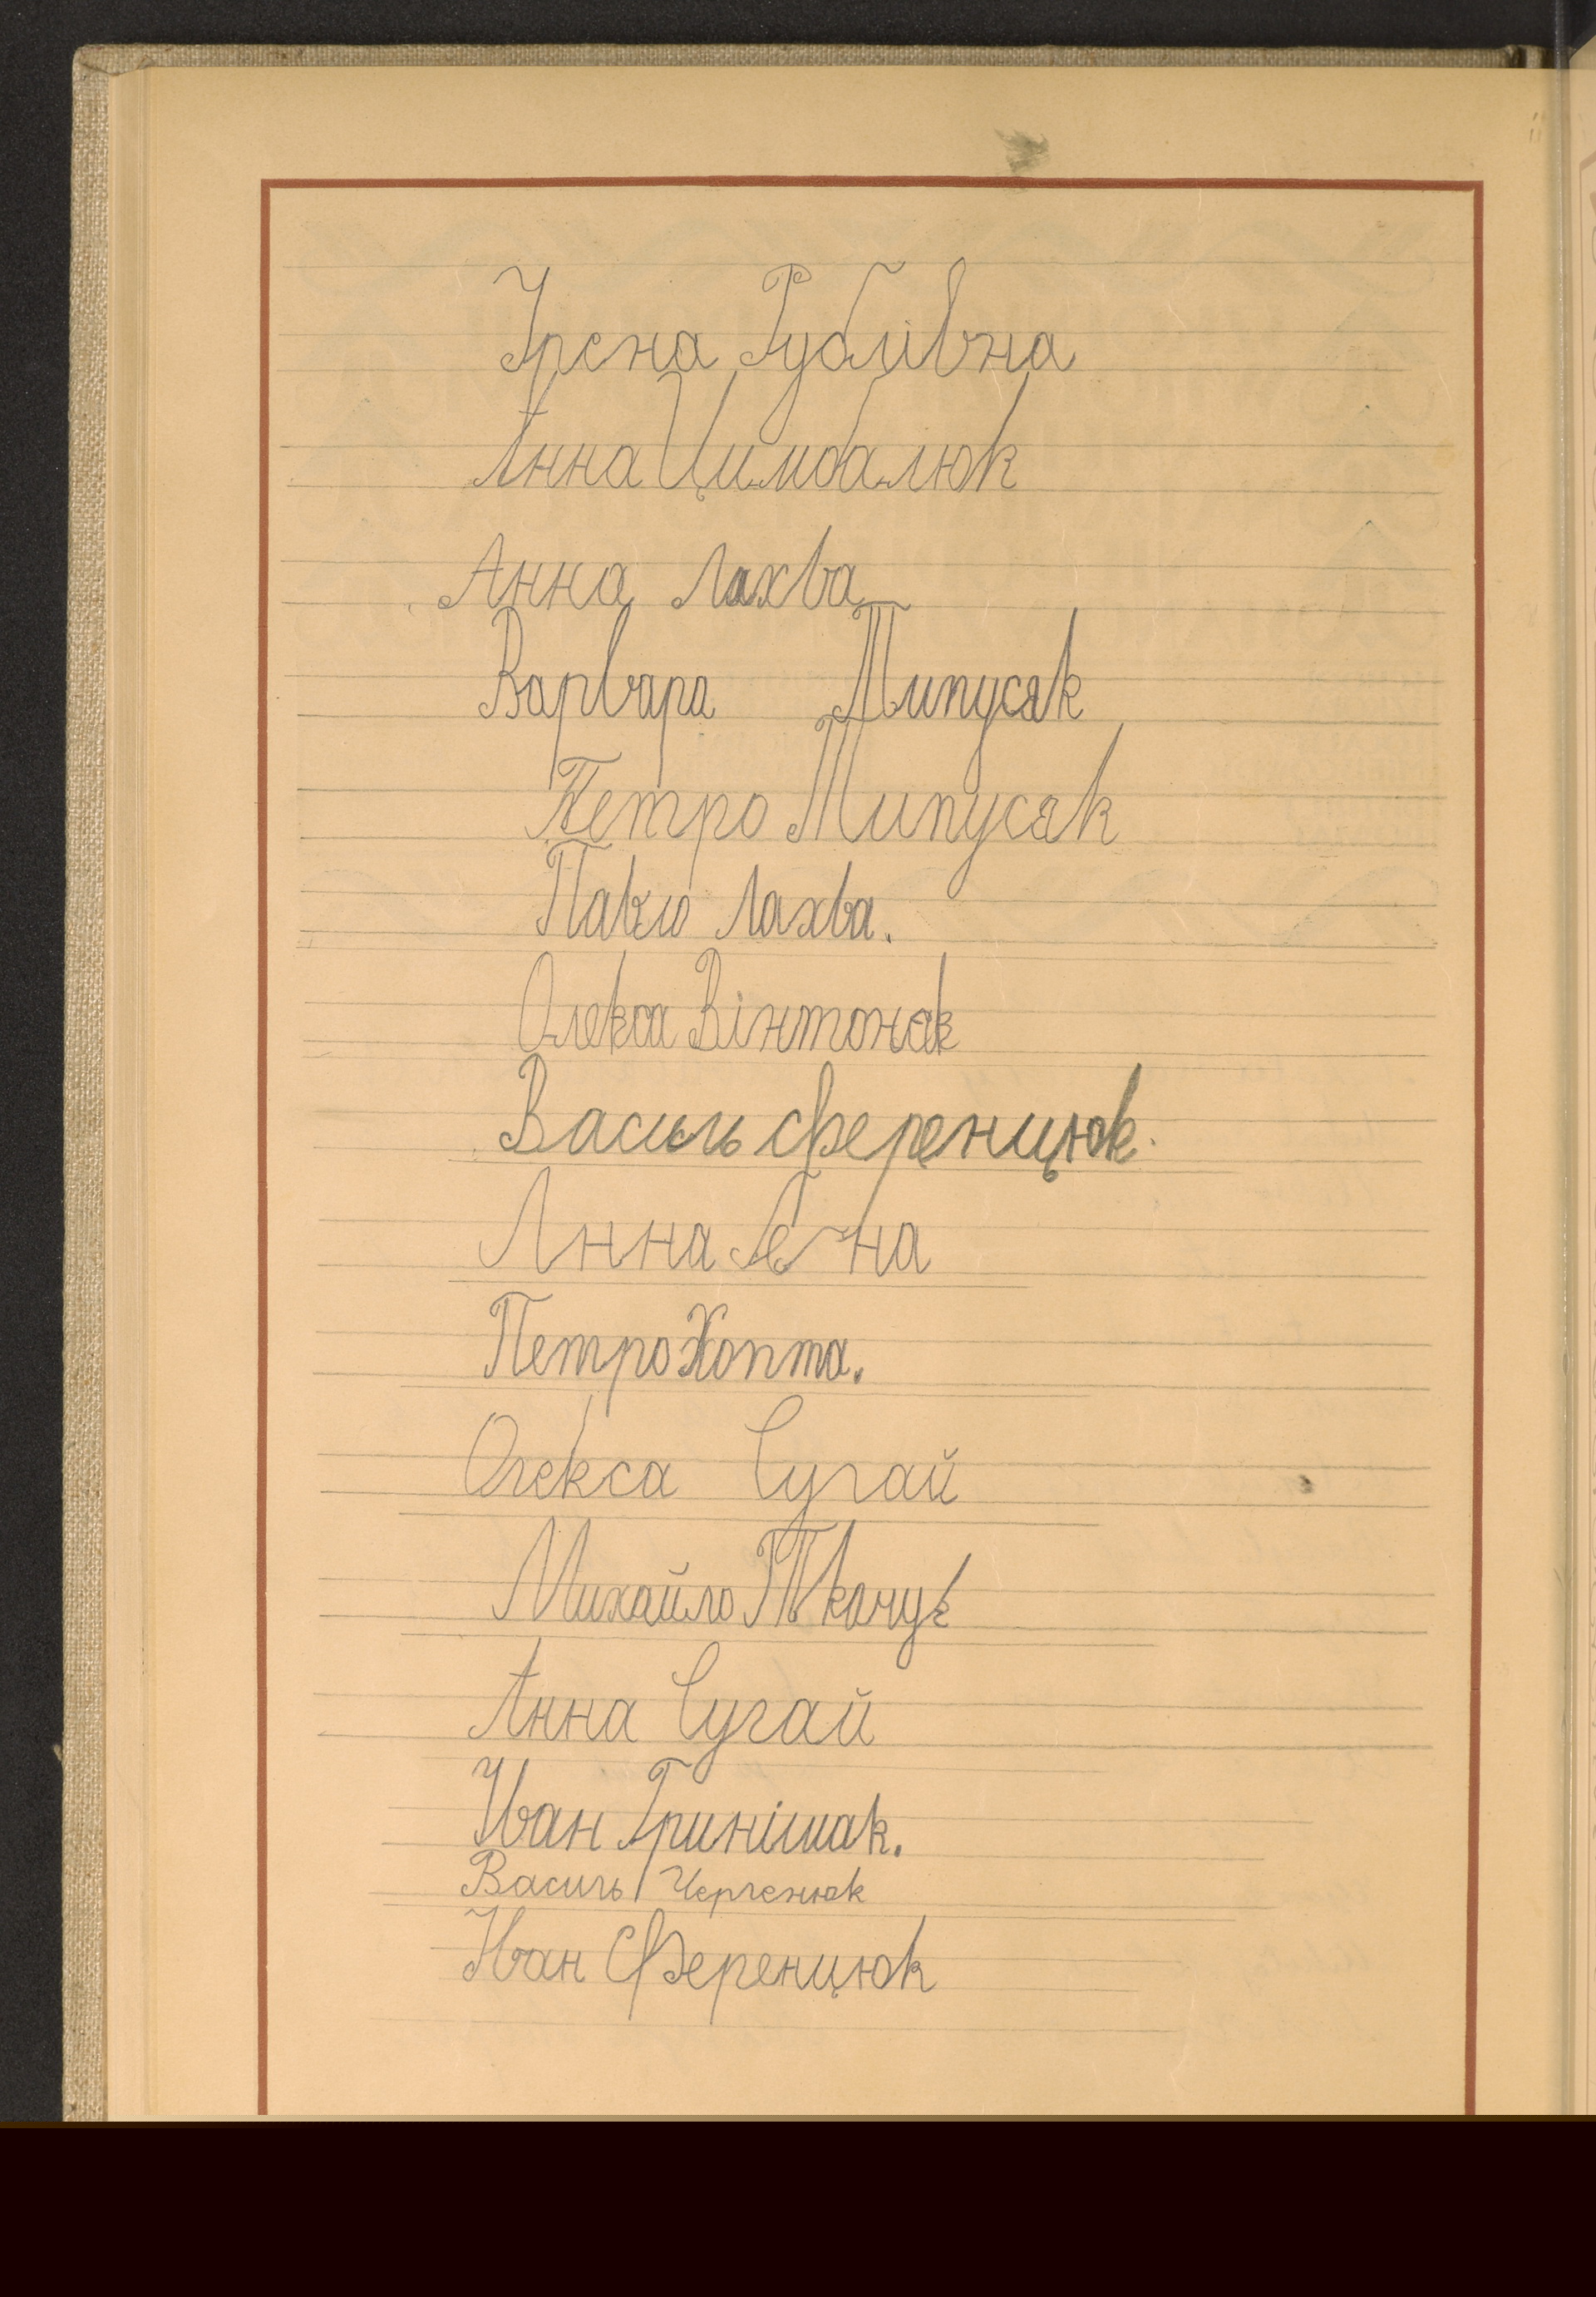 Ірена Рублівна
Анна Цимбалюк
Анна Лахва
Варвара Типусяк
Петро Типусяк
Павло Лахва.
Олекса Вінтоняк
Василь Ференцюк.
Анна
Петро Хопта.
Олекса Сугай
Михайло Ткачук
Анна Сугай
Іван Гринішак.
Василь
Іван Ференцюк